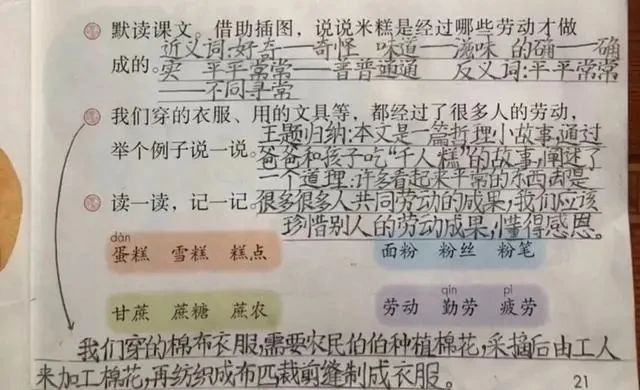 默读课文。借助插图，说说米糕是经过哪些劳动才做
近义词:好奇——奇怪 味道——滋味 的确——确
成的。实 平平常常——普普通通 反义词:平平常常
——不同寻常
我们穿的衣服、用的文具等，都经过了很多人的劳动，
主题归纳:本文是一篇哲理小故事,通过
举个例子说一说。爸爸和孩子吃“千人糕”的故事,阐述了
一个道理:许多看起来平常的东西,都是
读一读，记一记。很多很多人共同劳动的成果,我们应该
珍惜别人的劳动成果,懂得感恩。
dàn
蛋糕 雪糕 糕点 面粉 粉丝 粉笔
qín pí
甘蔗 蔗糖 蔗农 劳动 勤劳 疲劳
我们穿的棉布衣服,需要农民伯伯种植棉花,采摘后由工人
来加工棉花,再纺织成布匹裁剪缝制成衣服。
21